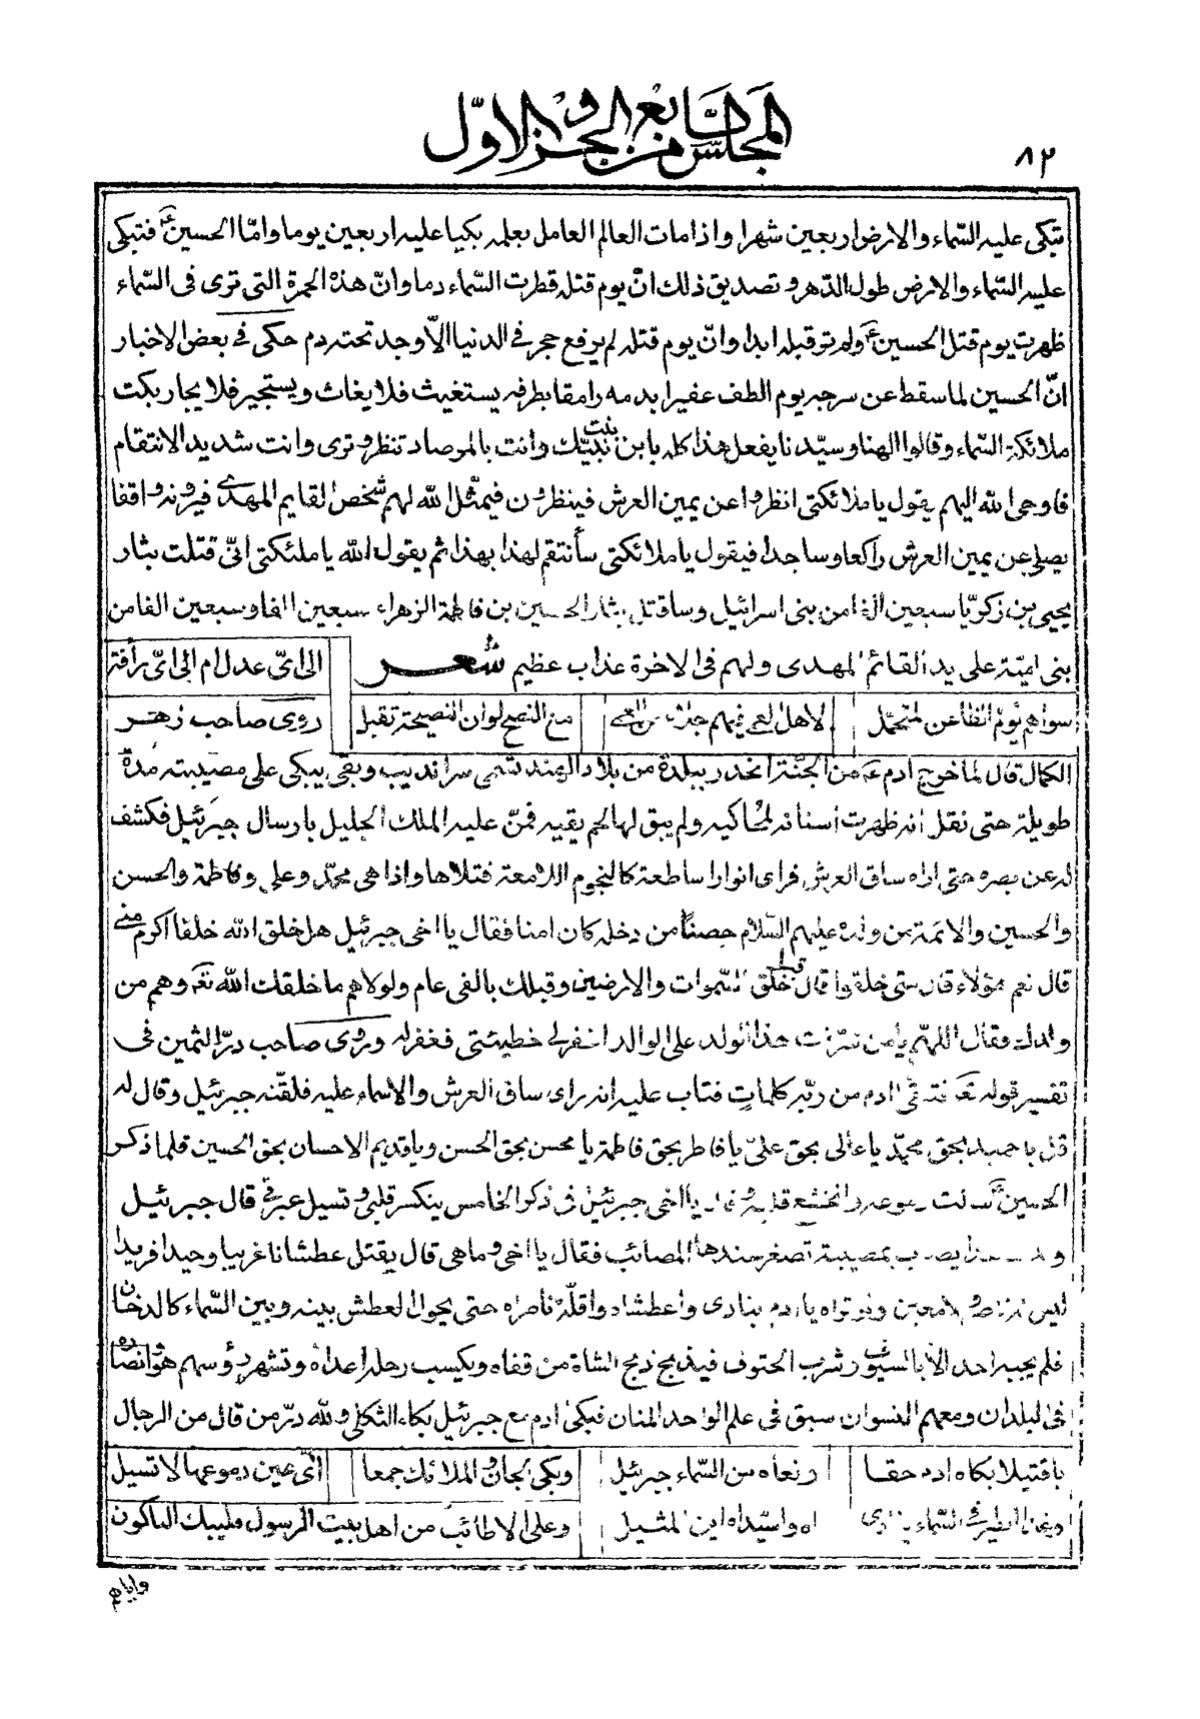 المجلس السابع من الجزء الاول
٨٢
تبكى عليه السّماء والارض اربعين شهرا واذا مات العالم العامل بعلمه بكيا عليه اربعين يوما وامّا الحسين ع فتبكى
عليه السّماء والارض طول الدّهر و تصديق ذلك انّ يوم قتله قطرت السّماء دما وانّ هذه الحمرة التى ترى فى السّماء
ظهرت يوم قتل الحسين ع ولم تر قبله ابدا وانّ يوم قتله لم يرفع حجر فى الدنيا الّا وجد تحته دم حكى فى بعض الاخبار
انّ الحسين لما سقط عن سرجه يوم الطف عفيرا بدمه رامقا بطرفه يستغيث فلا يغاث ويستجير فلا يجار بكت
ملائكة السّماء وقالوا الهنا وسيّدنا يفعل هذا كله بابن بنت نبيّك وانت بالمرصاد تنظر وترى وانت شديد الانتقام
فاوحى الله اليهم يقول يا ملائكتى انظروا عن يمين العرش فينظرون فيمثّل الله لهم شخص القايم المهدى فيرونه واقفا
يصلى عن يمين العرش راكعا وساجدا فيقول يا ملائكتى سأنتقم لهذا بهذا ثم يقول الله يا ملئكتى انّى قتلت بثار
يحيى بن زكريّا سبعين الفا من بنى اسرائيل وساقتل بثار الحسين بن فاطمة الزهراء سبعين الفا وسبعين الفا من
بنى اميّة على يد القائم المهدى ولهم فى الاخرة عذاب عظيم شعر الى اىّ عدل ام الى اىّ رأفة
سواهم يوم الظاعن المتحمّل لاهل العمى فيهم من العمى مع النصح لو ان النصيحة تقبل روى صاحب زهر
الكمال قال لما خرج ادم ع من الجنّة انحدر ببلدة من بلاد الهند تسمى سرانديب وبقى يبكى على مصيبته مدة
طويلة حتى نقل انه ظهرت أسنانه لمحاكيه ولم يبق لها لحم يقيه فمنّ عليه الملك الجليل بارسال جبرئيل فكشف
له عن بصره حتى اراه ساق العرش فراى انوارا ساطعة كالنجوم اللامعة فتلاها واذا هى محمّد وعلى وفاطمة والحسن
والحسين والائمة من ولده عليهم السّلام حصنا من دخله كان امنا فقال يا اخى جبرئيل هل خلق الله خلقا اكرم منى
قال نعم هؤلاء قال متى خلقوا قال قبل خلق السّموات والارضين وقبلك بالفى عام ولولاهم ما خلقك الله تعه وهم من
ولدك فقال اللهمّ يا من هذا الولد على الوالد اغفر لى خطيئتى فغفر له وروى صاحب درّ الثمين فى
تفسير قوله تعه فتلقى ادم من ربّه كلمات فتاب عليه انه راى ساق العرش والاسماء عليه فلقّنه جبرئيل وقال له
قل يا حميد بحق محمّد يا عالى بحق علىّ يا فاطر بحق فاطمة يا محسن بحق الحسن ويا قديم الاحسان بحق الحسين فلما ذكر
الحسين ع سالت دموعه وانخشع قلبه وقال يا اخى جبرئيل فى ذكر الخامس ينكسر قلبى وتسيل عبرتى قال جبرئيل
ولدك هذا يصاب بمصيبة تصغر عندها المصائب فقال يا اخى وما هى قال يقتل عطشانا غريبا وحيدا فريدا
ليس له ناصر ولا معين ولو تراه يا ادم ينادى واعطشاه واقلّة ناصراه حتى يحول العطش بينه وبين السّماء كالدخان
فلم يجبه احد الّا بالسيوف وشرب الحتوف فيذبح ذبح الشاة من قفاه ويكسب رحله اعداه وتشهر رؤسهم هو وانصاره
فى البلدان ومعهم النسوان سبق فى علم الواحد المنان فبكى ادم مع جبرئيل بكاء الثكلى ولله درّ من قال من الرجال
يا قتيلا بكاه ادم حقا ونعاه من السّماء جبرئيل وبكى الجان والملائك جمعا اىّ عين دموعها لا تسيل
الطير فى السّماء اه واسيّداه اين المثيل وعلى الاطائب من اهل بيت الرسول فليبك الباكون
واياهم